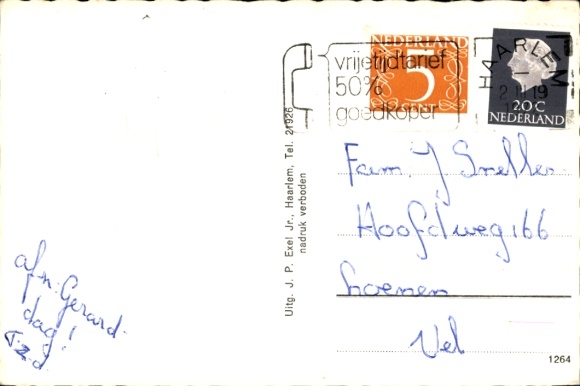 NEDERLAND
5
CENT
20 C
NEDERLAND
vrijetijdtarief
50%
goedkoper
HAARLEM
Uitg. J. P. Exel Jr., Haarlem, Tel. 21926
nadruk verboden
Fam. J Sneller
Hoofdweg 166
Loenen
Vel
afz: Gerard
dag!
1264